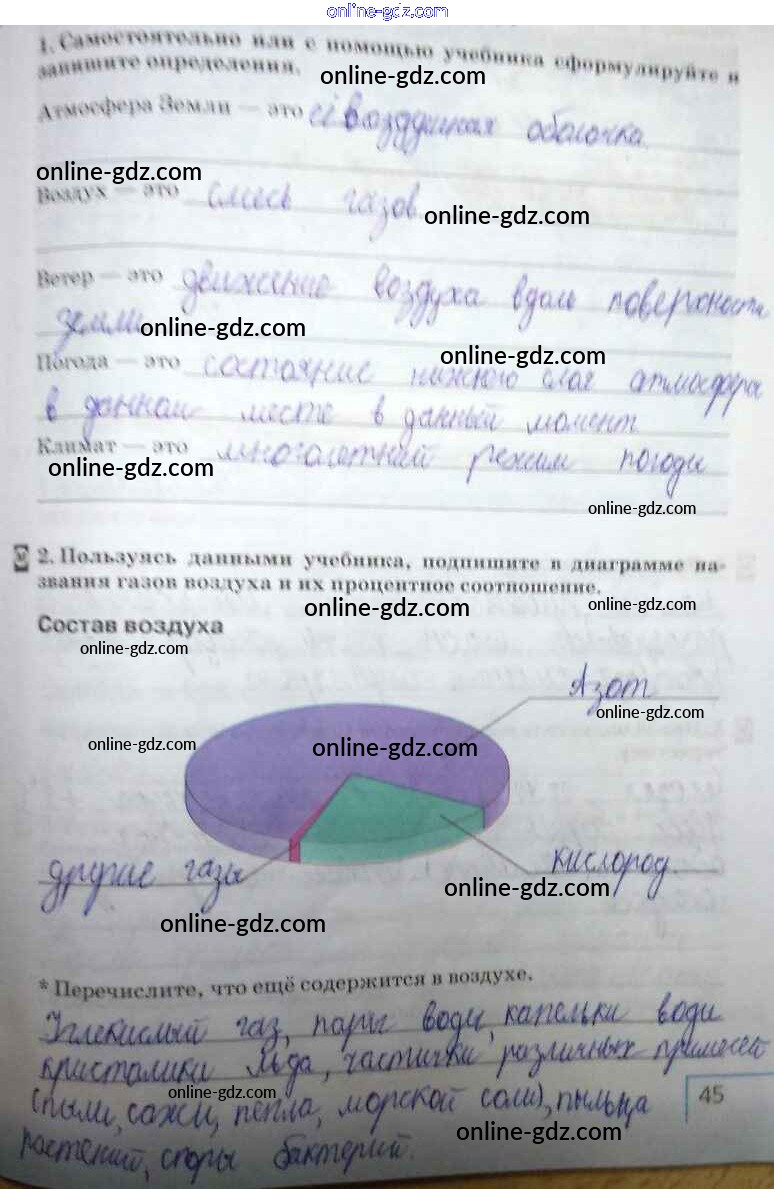 online-gdz.com
1. Самостоятельно или с помощью учебника сформулируйте и
запишите определения.
online-gdz.com
Атмосфера Земли — это её воздушная оболочка.
online-gdz.com
Воздух — это смесь газов
online-gdz.com
Ветер — это движение воздуха вдоль поверхности
земли
online-gdz.com
online-gdz.com
Погода — это состояние нижнего слоя атмосферы
в данном месте в данный момент
Климат — это многолетний режим погоды
online-gdz.com
online-gdz.com
2. Пользуясь данными учебника, подпишите в диаграмме на-
звания газов воздуха и их процентное соотношение.
online-gdz.com
online-gdz.com
Состав воздуха
online-gdz.com
Азот
online-gdz.com
online-gdz.com
online-gdz.com
другие газы
кислород.
online-gdz.com
online-gdz.com
* Перечислите, что ещё содержится в воздухе.
Углекислый газ, пары воды, капельки воды
кристалики льда, частички различных примесей
(пыли, сажи, пепла, морской соли), пыльца
online-gdz.com
45
online-gdz.com
растений, споры бактерий.